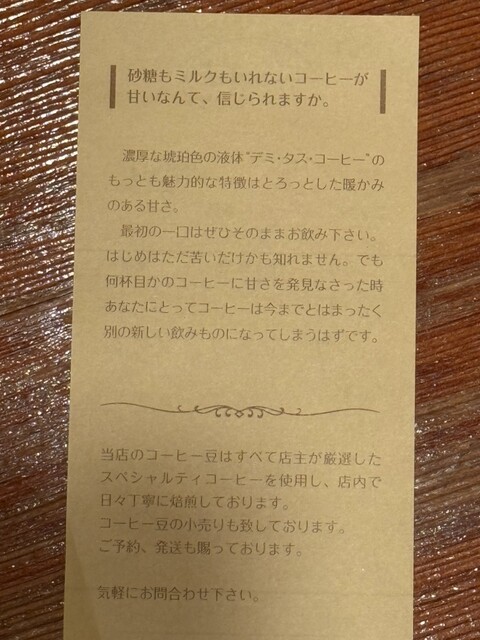 砂糖もミルクもいれないコーヒーが
甘いなんて、信じられますか。
濃厚な琥珀色の液体“デミ・タス・コーヒー”の
もっとも魅力的な特徴はとろっとした暖かみ
のある甘さ。
最初の一口はぜひそのままお飲み下さい。
はじめはただ苦いだけかも知れません。でも
何杯目かのコーヒーに甘さを発見なさった時
あなたにとってコーヒーは今までとはまったく
別の新しい飲みものになってしまうはずです。
当店のコーヒー豆はすべて店主が厳選した
スペシャルティコーヒーを使用し、店内で
日々丁寧に焙煎しております。
コーヒー豆の小売りも致しております。
ご予約、発送も賜っております。
気軽にお問合わせ下さい。